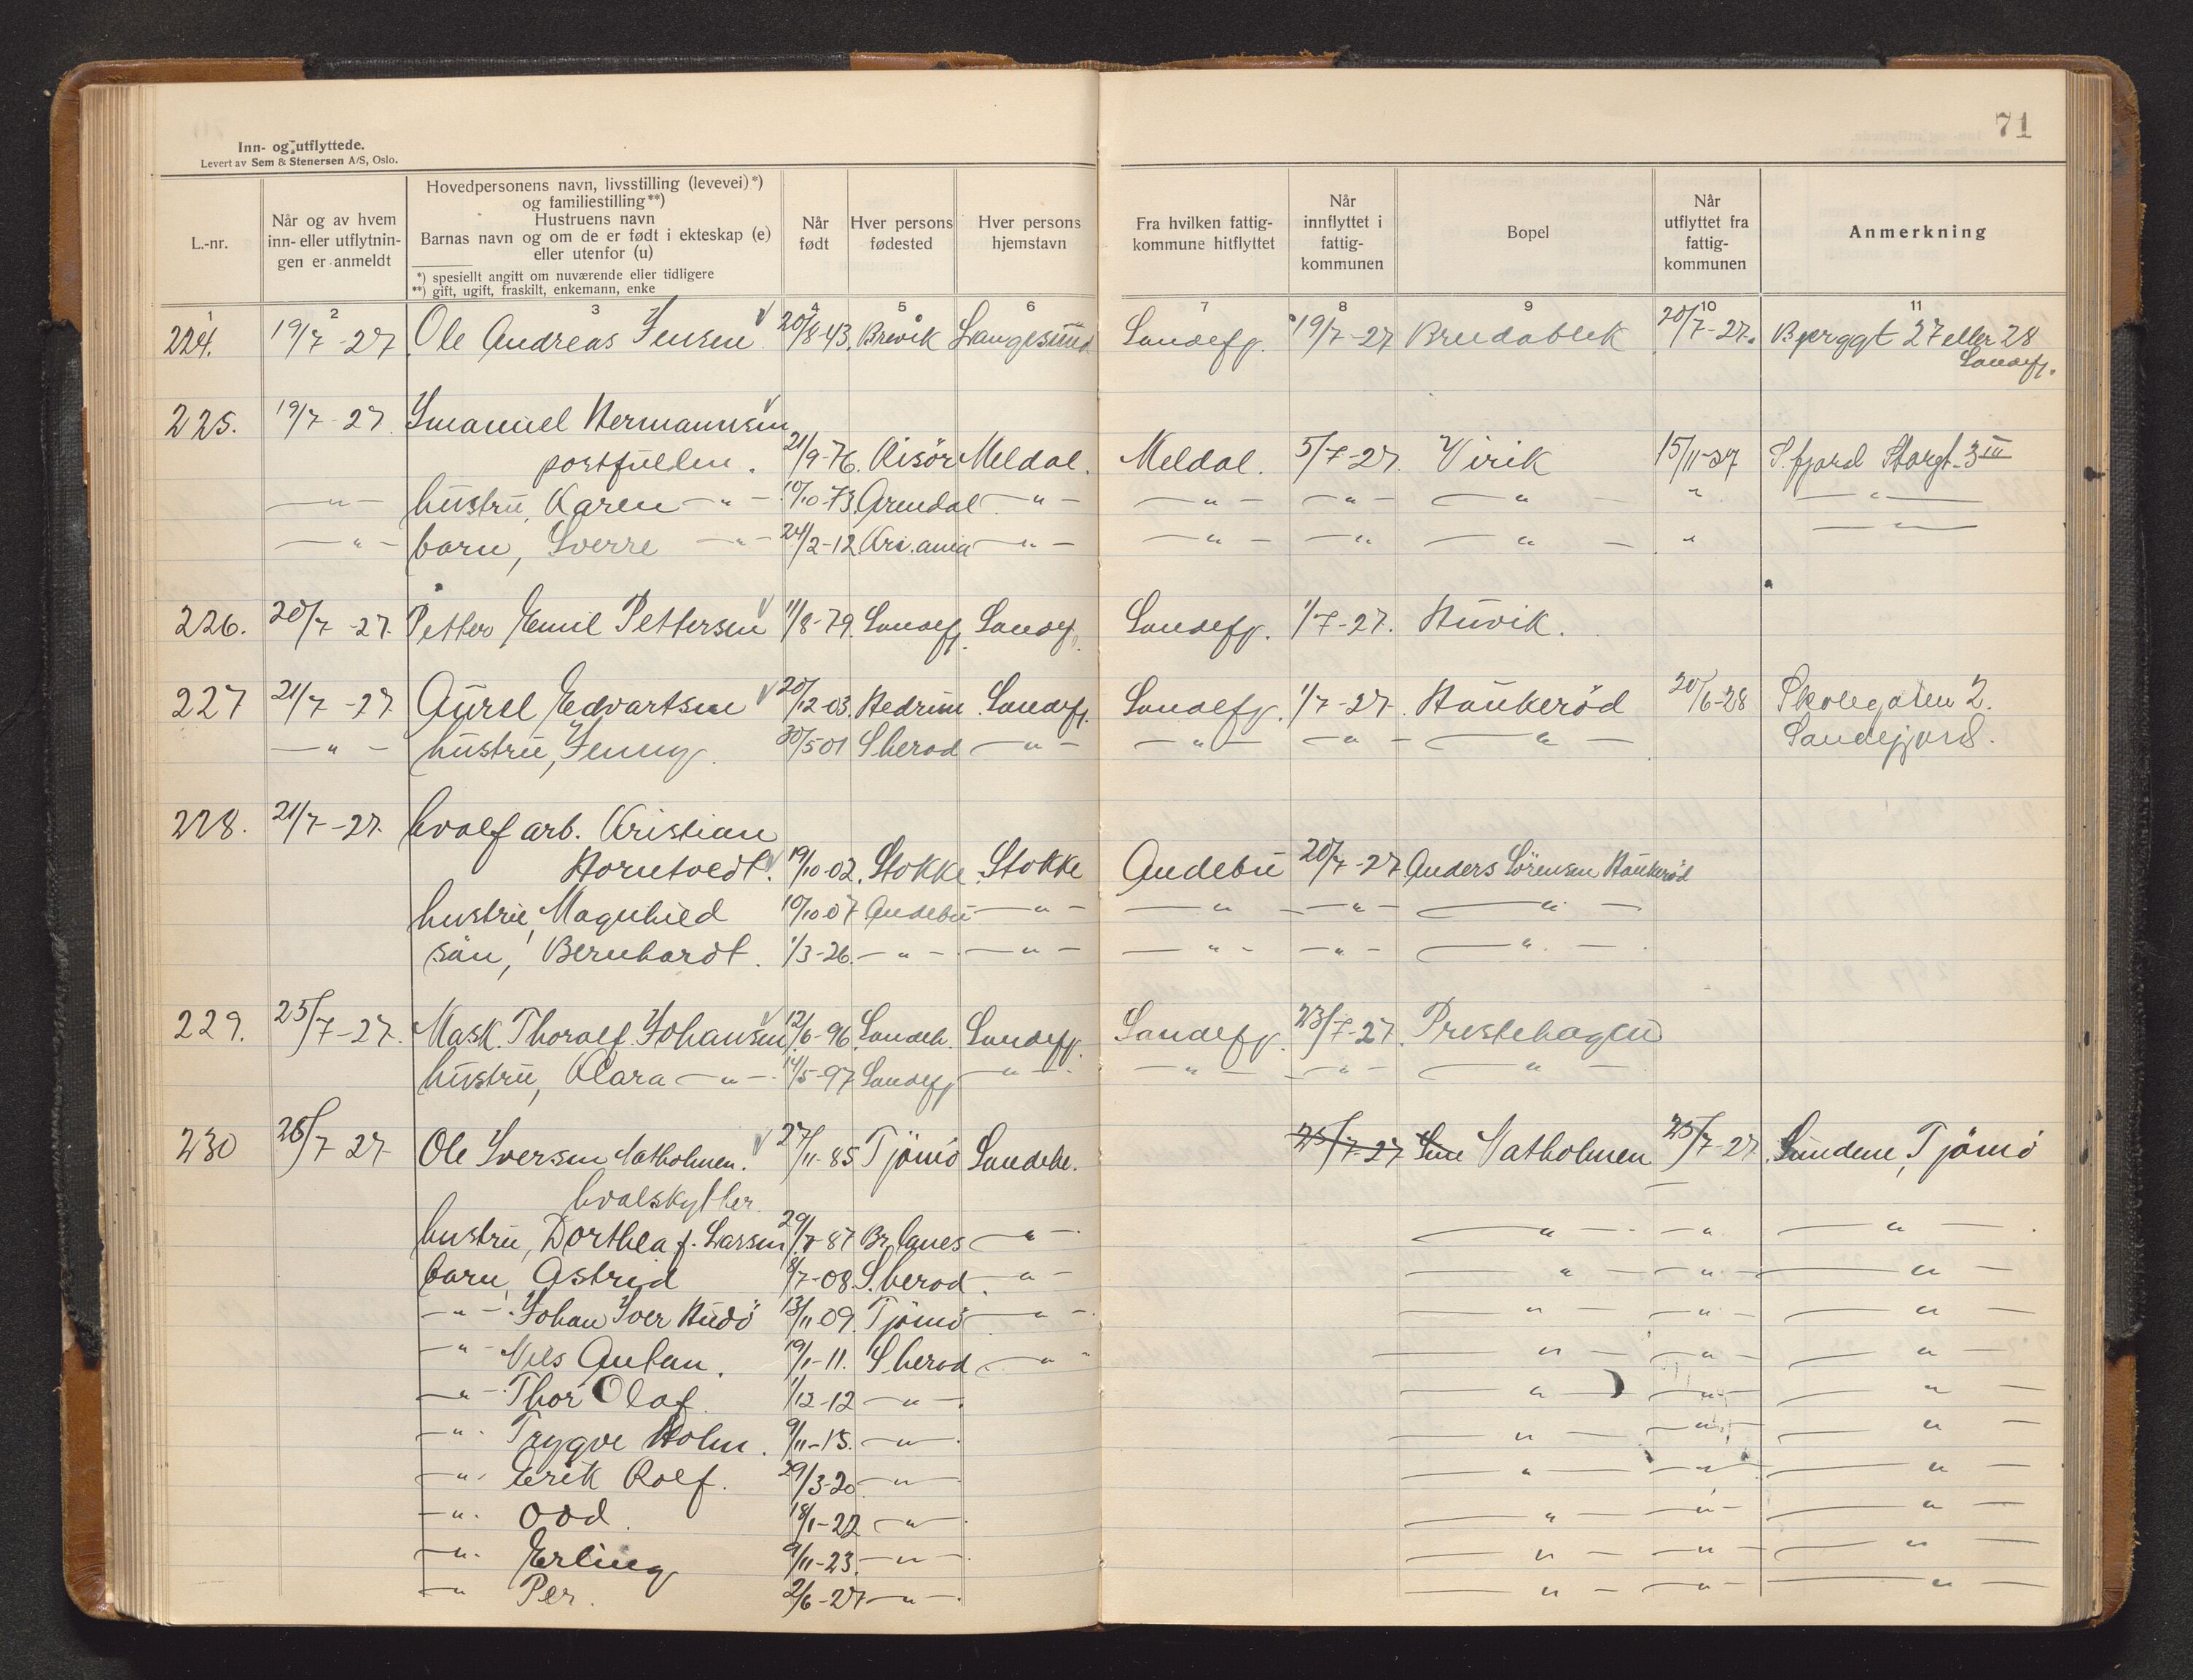 71
Inn- og utflyttede.
Levert av Sem & Stenersen A/S, Oslo.
L.-nr.
Når og av hvem
inn- eller utflytnin-
gen er anmeldt
Hovedpersonens navn, livsstilling (levevei) *)
og familiestilling **)
Hustruens navn
Barnas navn og om de er født i ekteskap (e)
eller utenfor (u)
*) spesiellt angitt om nuværende eller tidligere
**) gift, ugift, fraskilt, enkemann, enke
Når
født
Hver persons
fødested
Hver persons
hjemstavn
Fra hvilken fattig-
kommune hitflyttet
Når
innflyttet i
fattig-
kommunen
Bopel
Når
utflyttet fra
fattig-
kommunen
Anmerkning
1 2 3 4 5 6 7 8 9 10 11
224. 19/7-27 Ole Andreas Jensen 20/8-43. Brevik Langesund Sandefj. 19/7-27 Bredablik 20/7-27. Bjerggt 27 eller 28
Sandefj.
225. 19/7-27. Imanuel Hermannsen
portfullm. 21/9-76. Risör Meldal. Meldal. 5/7-27. Virik 15/11-27 S.fjord Storgt. 3 III
-"- hustru, Karen -"- 10/10-73. Arendal -"- -"- -"- -"- " -"-
-"- barn, Sverre -"- 24/2-12 Kri.ania -"- -"- -"- -"- " -"-
226. 20/7-27. Petter Emil Pettersen 11/8-79. Sandefj. Sandefj. Sandefj. 1/7-27. Huvik.
227 21/7-27 Aurel Edvartsen 20/12-03. Hedrum Sandefj. Sandefj. 1/7-27. Haukeröd 20/6-28 Skolegaten 2.
-"- hustru, Jenny. 30/5 01 Sherod -"- -"- -"- -"- Sandefjord.
228. 21/7-27. hvalf arb. Kristian
Horntvedt. 19/10-02. Stokke Stokke Andebu 20/7-27 Anders Sörensen Haukeröd
hustru, Magnhild 10/10 07 Andebu -"- -"- -"- -"-
sön, Bernhardt. 1/3-26. -"- -"- -"- -"- -"-
229. 25/7-27. Mask. Thoralf Johansen 12/6-96 Sandeh. Sandefj. Sandefj. 23/7-27. Prestehagen
hustru, Klara -"- 14/5-97 Sandefj -"- -"- -"- -"-
230 26/7 27 Ole Iversen Natholmen. 27/11-85 Tjömö Sandeh. 25/7-27 Natholmen 25/7-27. Sundene, Tjömö
hvalskytter.
hustru, Dorthea f. Larsen 29/8-87 Br.lanes -"- -"- -"- -"-
barn, Astrid 8/7-08 S.herod. -"- -"- -"- -"-
-"- Johan Iver Hudö 13/11 09. Tjömö -"- -"- -"- -"-
-"- Nils Anfan. 19/1-11. Sherod -"- -"- -"- -"-
-"- Thor Olaf. 1/12-12 -"- -"- -"- -"-
-"- Trygve Holm. 9/11-15. -"- -"- -"- -"-
-"- Erik Rolf. 29/3-20 -"- -"- -"- -"-
-"- Odd. 18/1-22 -"- -"- -"- -"-
-"- Erling 9/11-23. -"- -"- -"- -"-
-"- Per. 2/6-27 -"- -"- -"- -"-